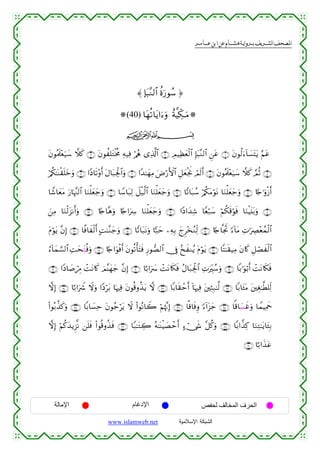 المصحف الشريف برواية هشام عن ابن عامر
﴿ سُورَةُ ٱلنَّبَإِ ﴾
* مَكِّيَّةٌ وَءَايَاتُهَا (40) *
بِسْمِ ٱللَّهِ ٱلرَّحْمَٰنِ ٱلرَّحِيمِ
عَمَّ يَتَسَآءَلُونَ ۝ عَنِ ٱلنَّبَإِ ٱلْعَظِيمِ ۝ ٱلَّذِى هُمْ فِيهِ مُخْتَلِفُونَ ۝ كَلَّا سَيَعْلَمُونَ
۝ ثُمَّ كَلَّا سَيَعْلَمُونَ ۝ أَلَمْ نَجْعَلِ ٱلْأَرْضَ مِهَٰدًا ۝ وَٱلْجِبَالَ أَوْتَادًا ۝ وَخَلَقْنَٰكُمْ
أَزْوَٰجًا ۝ وَجَعَلْنَا نَوْمَكُمْ سُبَاتًا ۝ وَجَعَلْنَا ٱلَّيْلَ لِبَاسًا ۝ وَجَعَلْنَا ٱلنَّهَارَ مَعَاشًا
۝ وَبَنَيْنَا فَوْقَكُمْ سَبْعًا شِدَادًا ۝ وَجَعَلْنَا سِرَاجًا وَهَّاجًا ۝ وَأَنزَلْنَا مِنَ
ٱلْمُعْصِرَٰتِ مَآءً ثَجَّاجًا ۝ لِّنُخْرِجَ بِهِۦ حَبًّا وَنَبَاتًا ۝ وَجَنَّٰتٍ أَلْفَافًا ۝ إِنَّ يَوْمَ
ٱلْفَصْلِ كَانَ مِيقَٰتًا ۝ يَوْمَ يُنفَخُ فِى ٱلصُّورِ فَتَأْتُونَ أَفْوَاجًا ۝ وَفُتِّحَتِ ٱلسَّمَآءُ
فَكَانَتْ أَبْوَٰبًا ۝ وَسُيِّرَتِ ٱلْجِبَالُ فَكَانَتْ سَرَابًا ۝ إِنَّ جَهَنَّمَ كَانَتْ مِرْصَادًا ۝
لِّلطَّٰغِينَ مَـَٔابًا ۝ لَّٰبِثِينَ فِيهَآ أَحْقَابًا ۝ لَّا يَذُوقُونَ فِيهَا بَرْدًا وَلَا شَرَابًا ۝ إِلَّا
حَمِيمًا وَغَسَاقًا ۝ جَزَآءً وِفَاقًا ۝ إِنَّهُمْ كَانُوا۟ لَا يَرْجُونَ حِسَابًا ۝ وَكَذَّبُوا۟
بِـَٔايَٰتِنَا كِذَّابًا ۝ وَكُلَّ شَىْءٍ أَحْصَيْنَٰهُ كِتَٰبًا ۝ فَذُوقُوا۟ فَلَن نَّزِيدَكُمْ إِلَّا
عَذَابًا ۝
الحرف المخالف لحفص الإدغام الإمالة
الشبكة الإسلامية www.islamweb.net